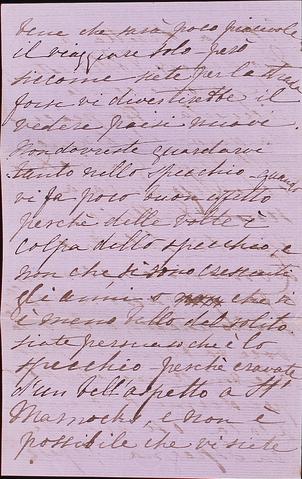 bene che sarà poco piacevole
il viaggiare solo però
siccome siete per la strada
forse vi divertirebbe il
vedere paesi nuovi.
Non dovreste guardarvi
tanto nello specchio, quando
vi fa poco buon effetto
perchè delle volte è
colpa dello specchio, e
non che si sono cresciuti
gli anni o che si
è meno bello del solito.
siate persuaso che è lo
specchio perchè eravate
d'un bell'aspetto a St
, e non è
possibile che vi siete